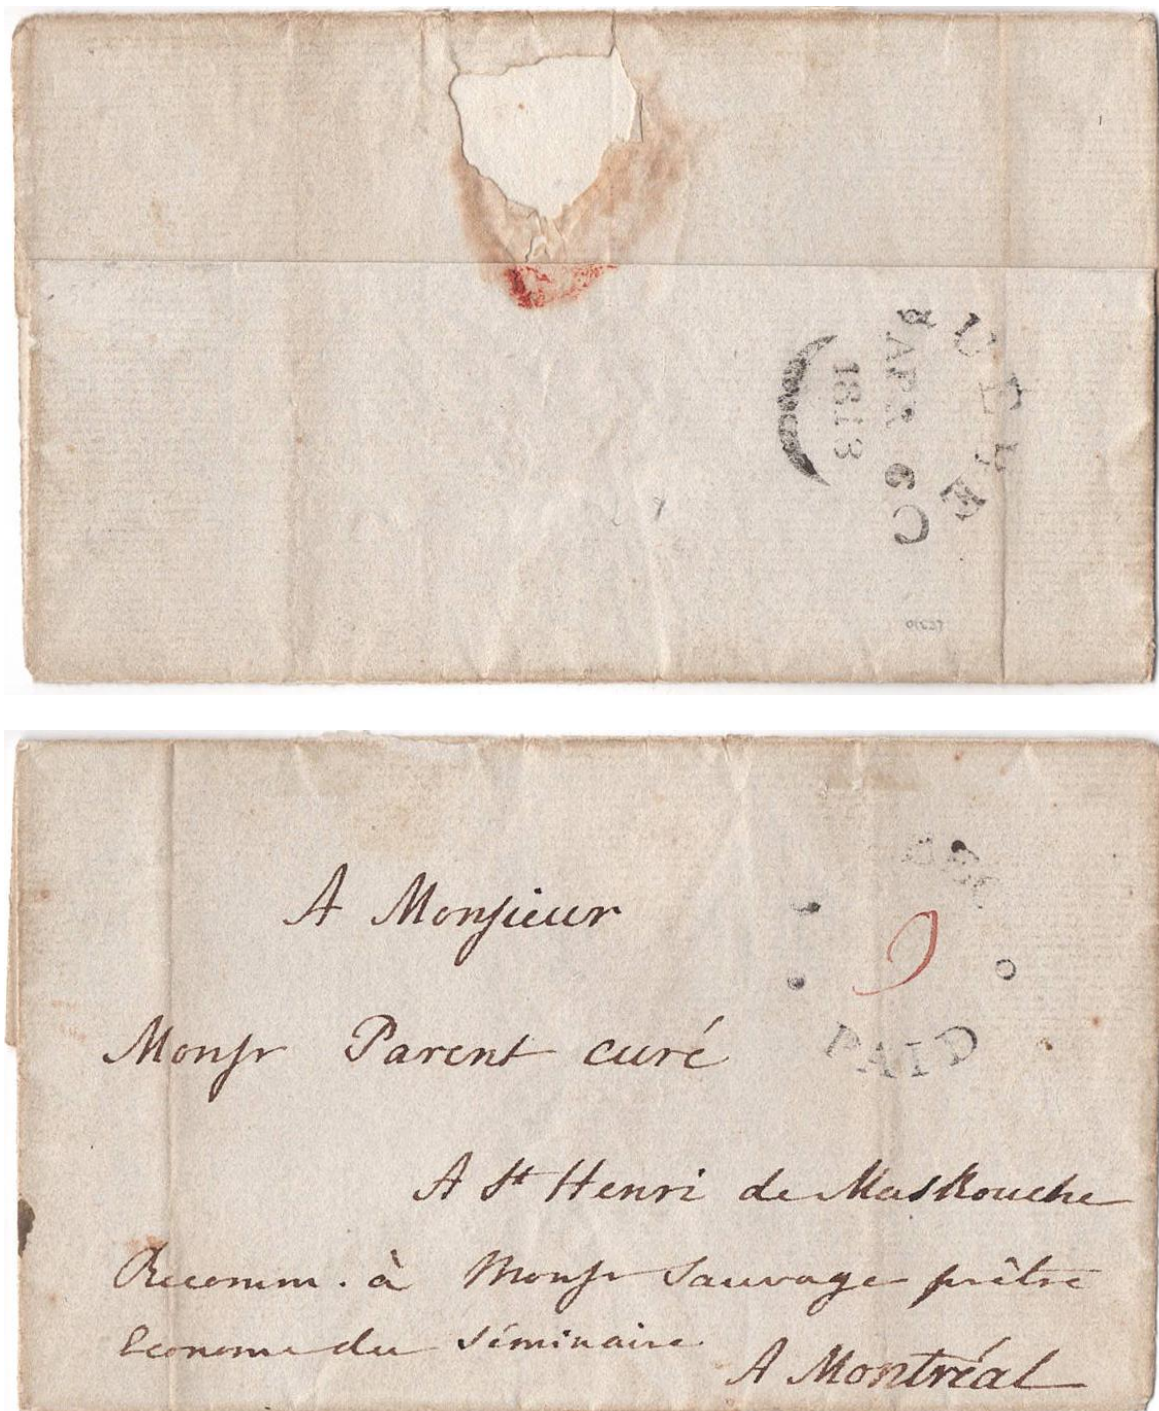 QUEBEC
APR 6
1813
9
PAID
A Monsieur
Monsr Parent curé
A St Henri de Maskouche
Recomm. à Monsr Sauvage prêtre
Econome du Séminaire
A Montréal